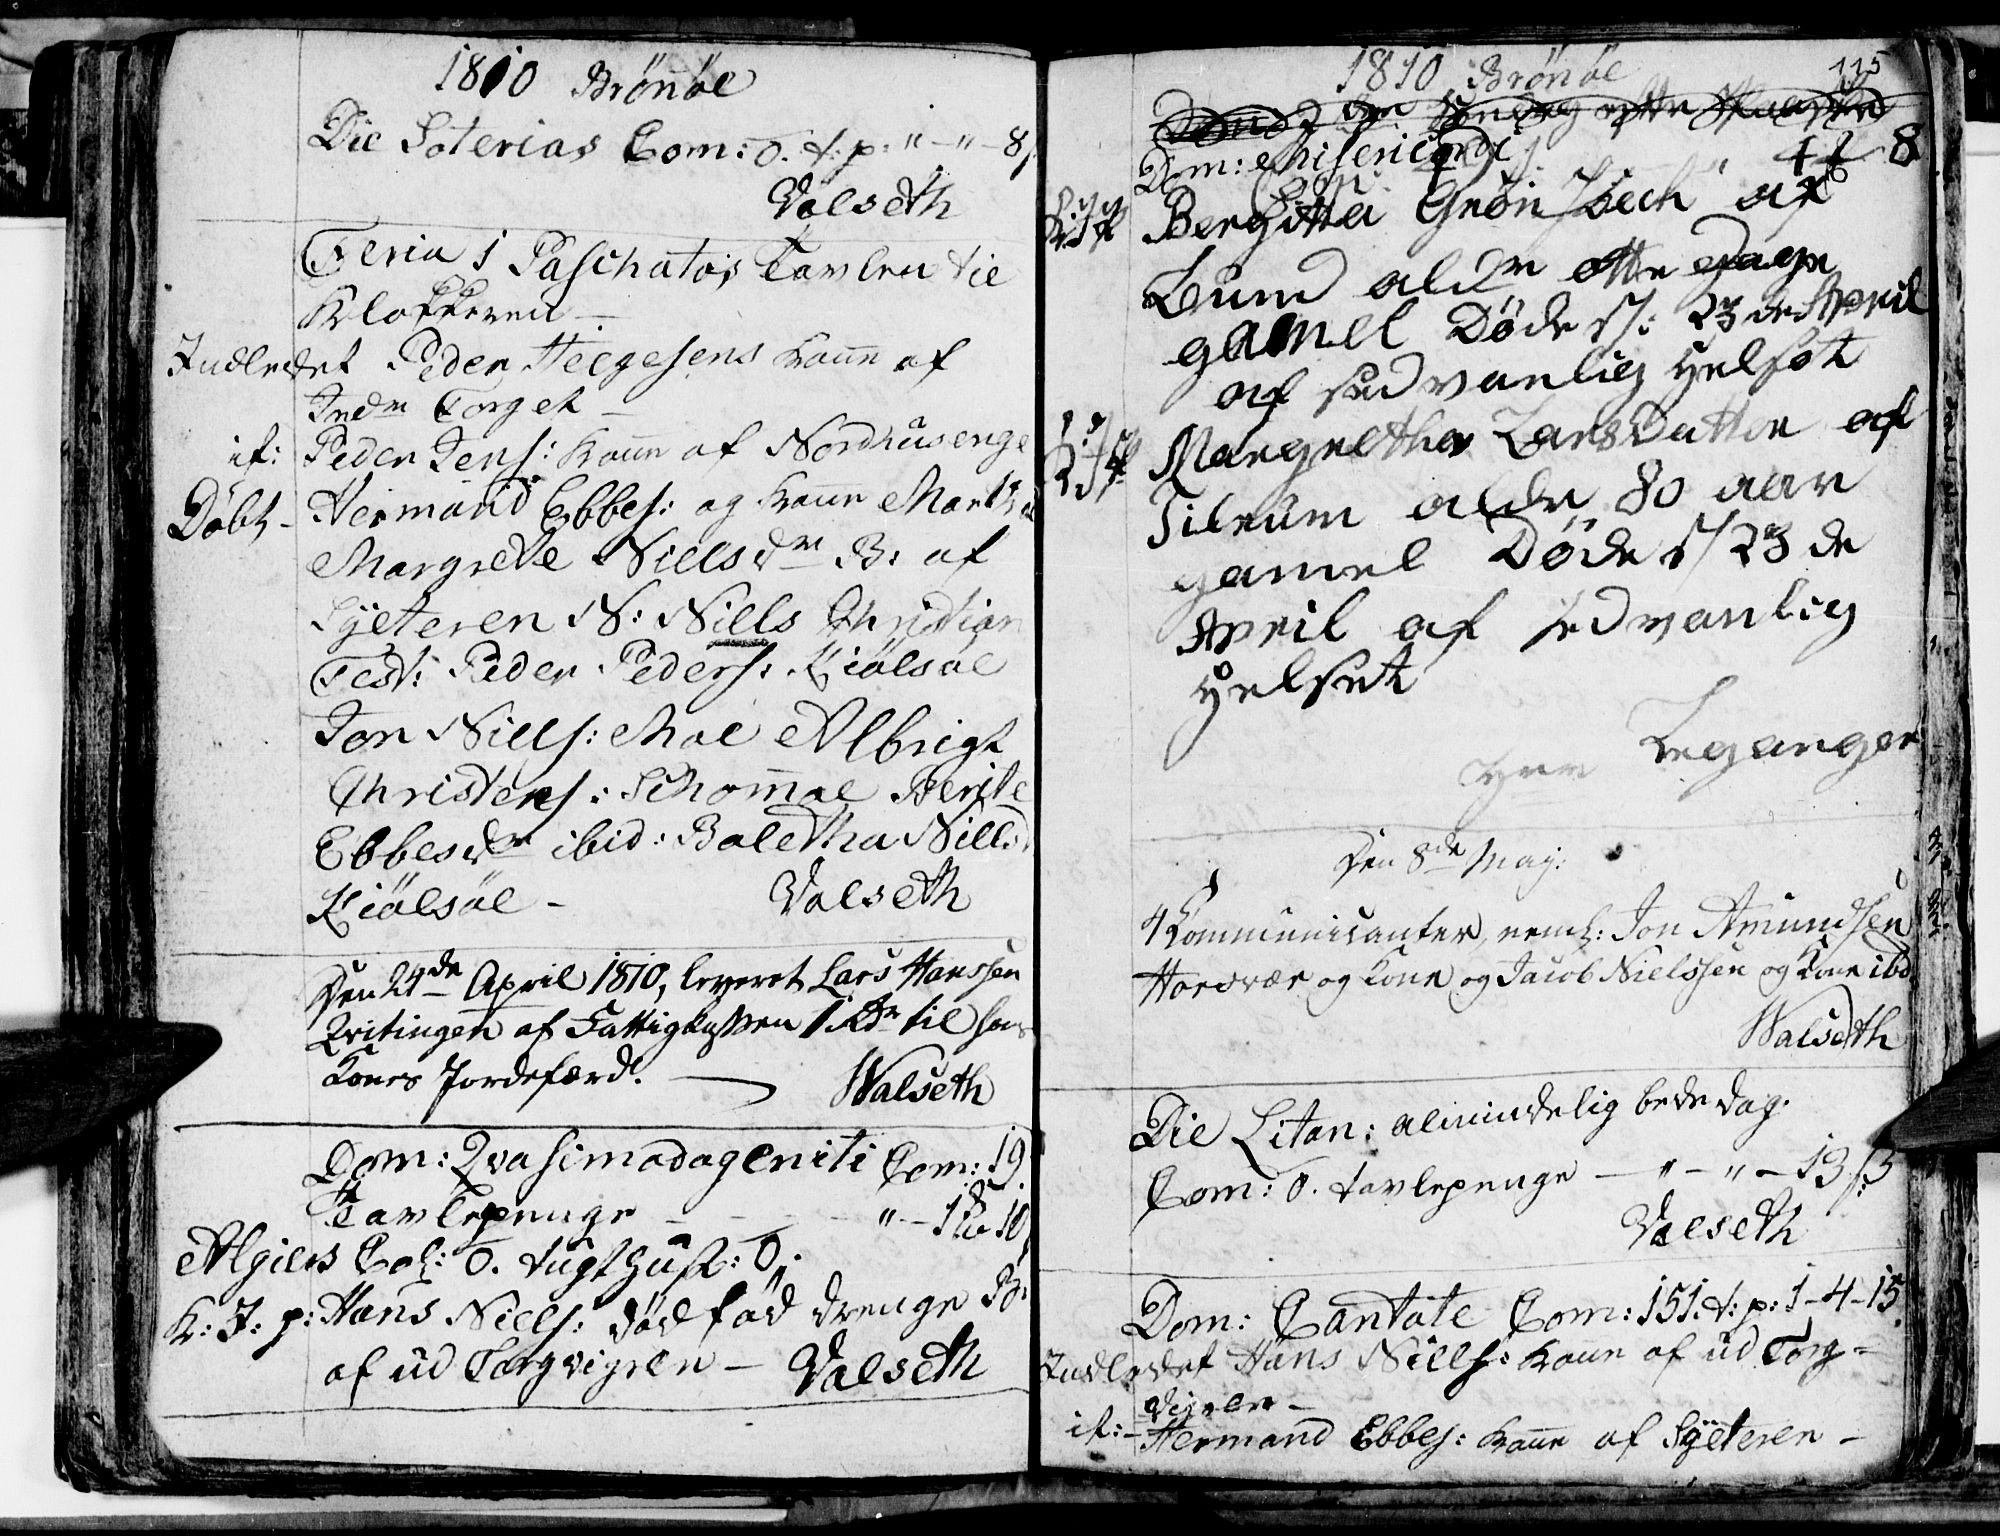 1810 Brönöe
Die Soterias Com: 0. t: p: " - " - 8ß
Valseth
Feria 1 Paschatos Tavlen til
Klokkeren -
Indledet Peder Helgesens Kone af
Indr Torget -
it: Peder Jens: Kone af Nordhusenge
Döbt - Hermand Ebbes: og Kone
Margrete Nielsdr B: af
Syeteren N: Niels Christian
Test: Peder Peders: Kiölsöe
Jon Niels: Moe Albrigt
Christens: Schomoe Berite
Ebbesdr ibid: Boletha Nielsd
Kiölsöe - Valseth
Den 24de April 1810, leveret Lars Hanssen
Qvitingen af Fattigkassen 1 Rdr til hans
Kones Jordefærd. Walseth
Dom: Qvasimodogeniti Com: 19.
Tavlepenge - - - " - 1 10
Algiers Col: 0. tugthust: 0.
K: J: p: Hans Niels: dödfød drenge B:
af ud Torgvigen - Valseth
1810 Brönöe 115
Dom: Misericordi 4 8
Bergitta Grön af
Lund aldr otte dage
gamel Døde s/: 23de April
af sedvanlig helsot
Margretha LarsDatter af
Tilrum aldr 80 aar
gamel Døde s/ 23de
April af sedvanlig
helsot
Leganger
Den 8de Maj:
4 Kommunicanter, neml: Jon Amundsen
Horsvær og Kone og Jacob Nielssen og Kone ibd
Walseth
Die Litan: almindelig bededag.
Com: 0. tavlepenge - " - " - 13 ß
Valseth
Dom: Cantate Com: 151. t: p: 1-4-15.
Indledet Hans Niels: Kone af ud Torg-
vigen -
it: - Hermand Ebbes: Kone af Syeteren -